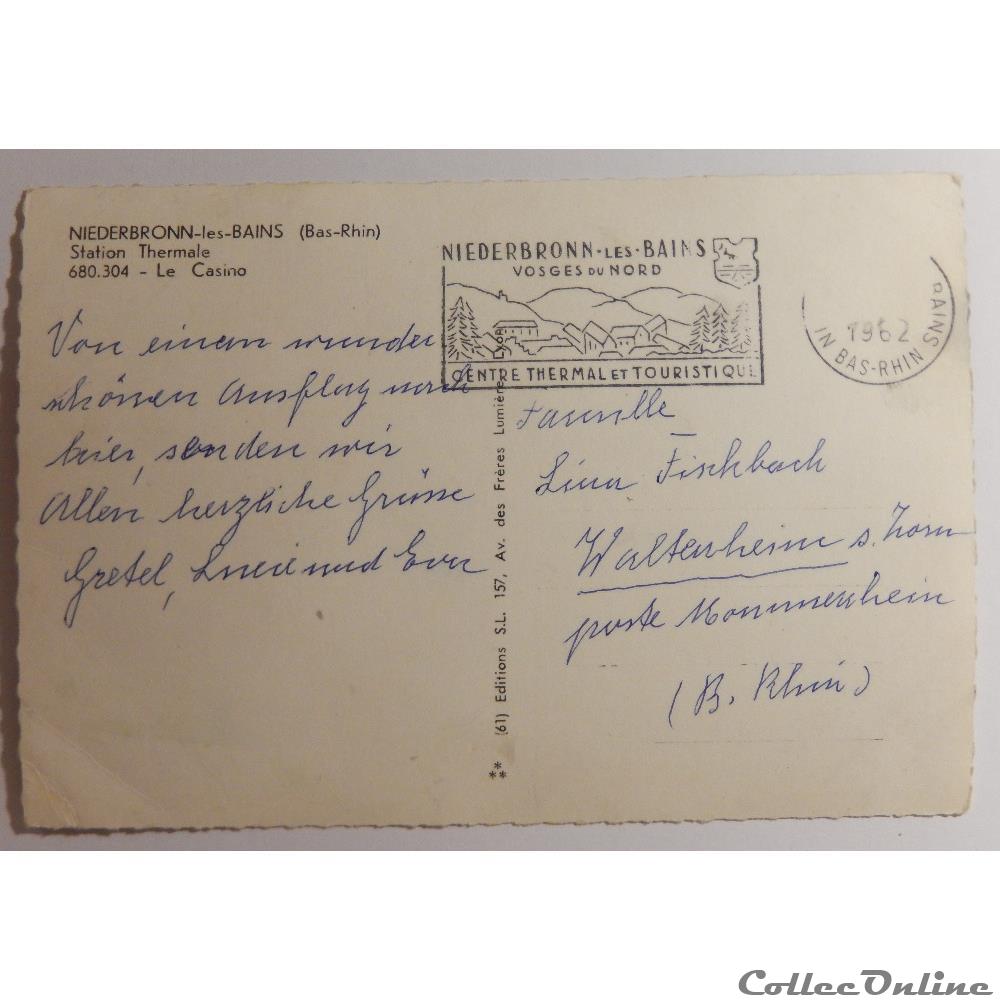 NIEDERBRONN-les-BAINS (Bas-Rhin)
Station Thermale
680.304 - Le Casino
Von einem wunder
schönen Ausflug nach
hier, senden wir
Allen herzliche Grüsse
Gretel, und Eva
NIEDERBRONN-LES-BAINS
VOSGES DU NORD
CENTRE THERMAL ET TOURISTIQUE
BAINS
1962
IN BAS-RHIN
** (61) Editions S.L. 157, Av. des Frères Lumière - Lyon
Famille
Lina Fischbach
Waltenheim s. Zorn
poste Mommenheim
(B. Rhin)
CollecOnline